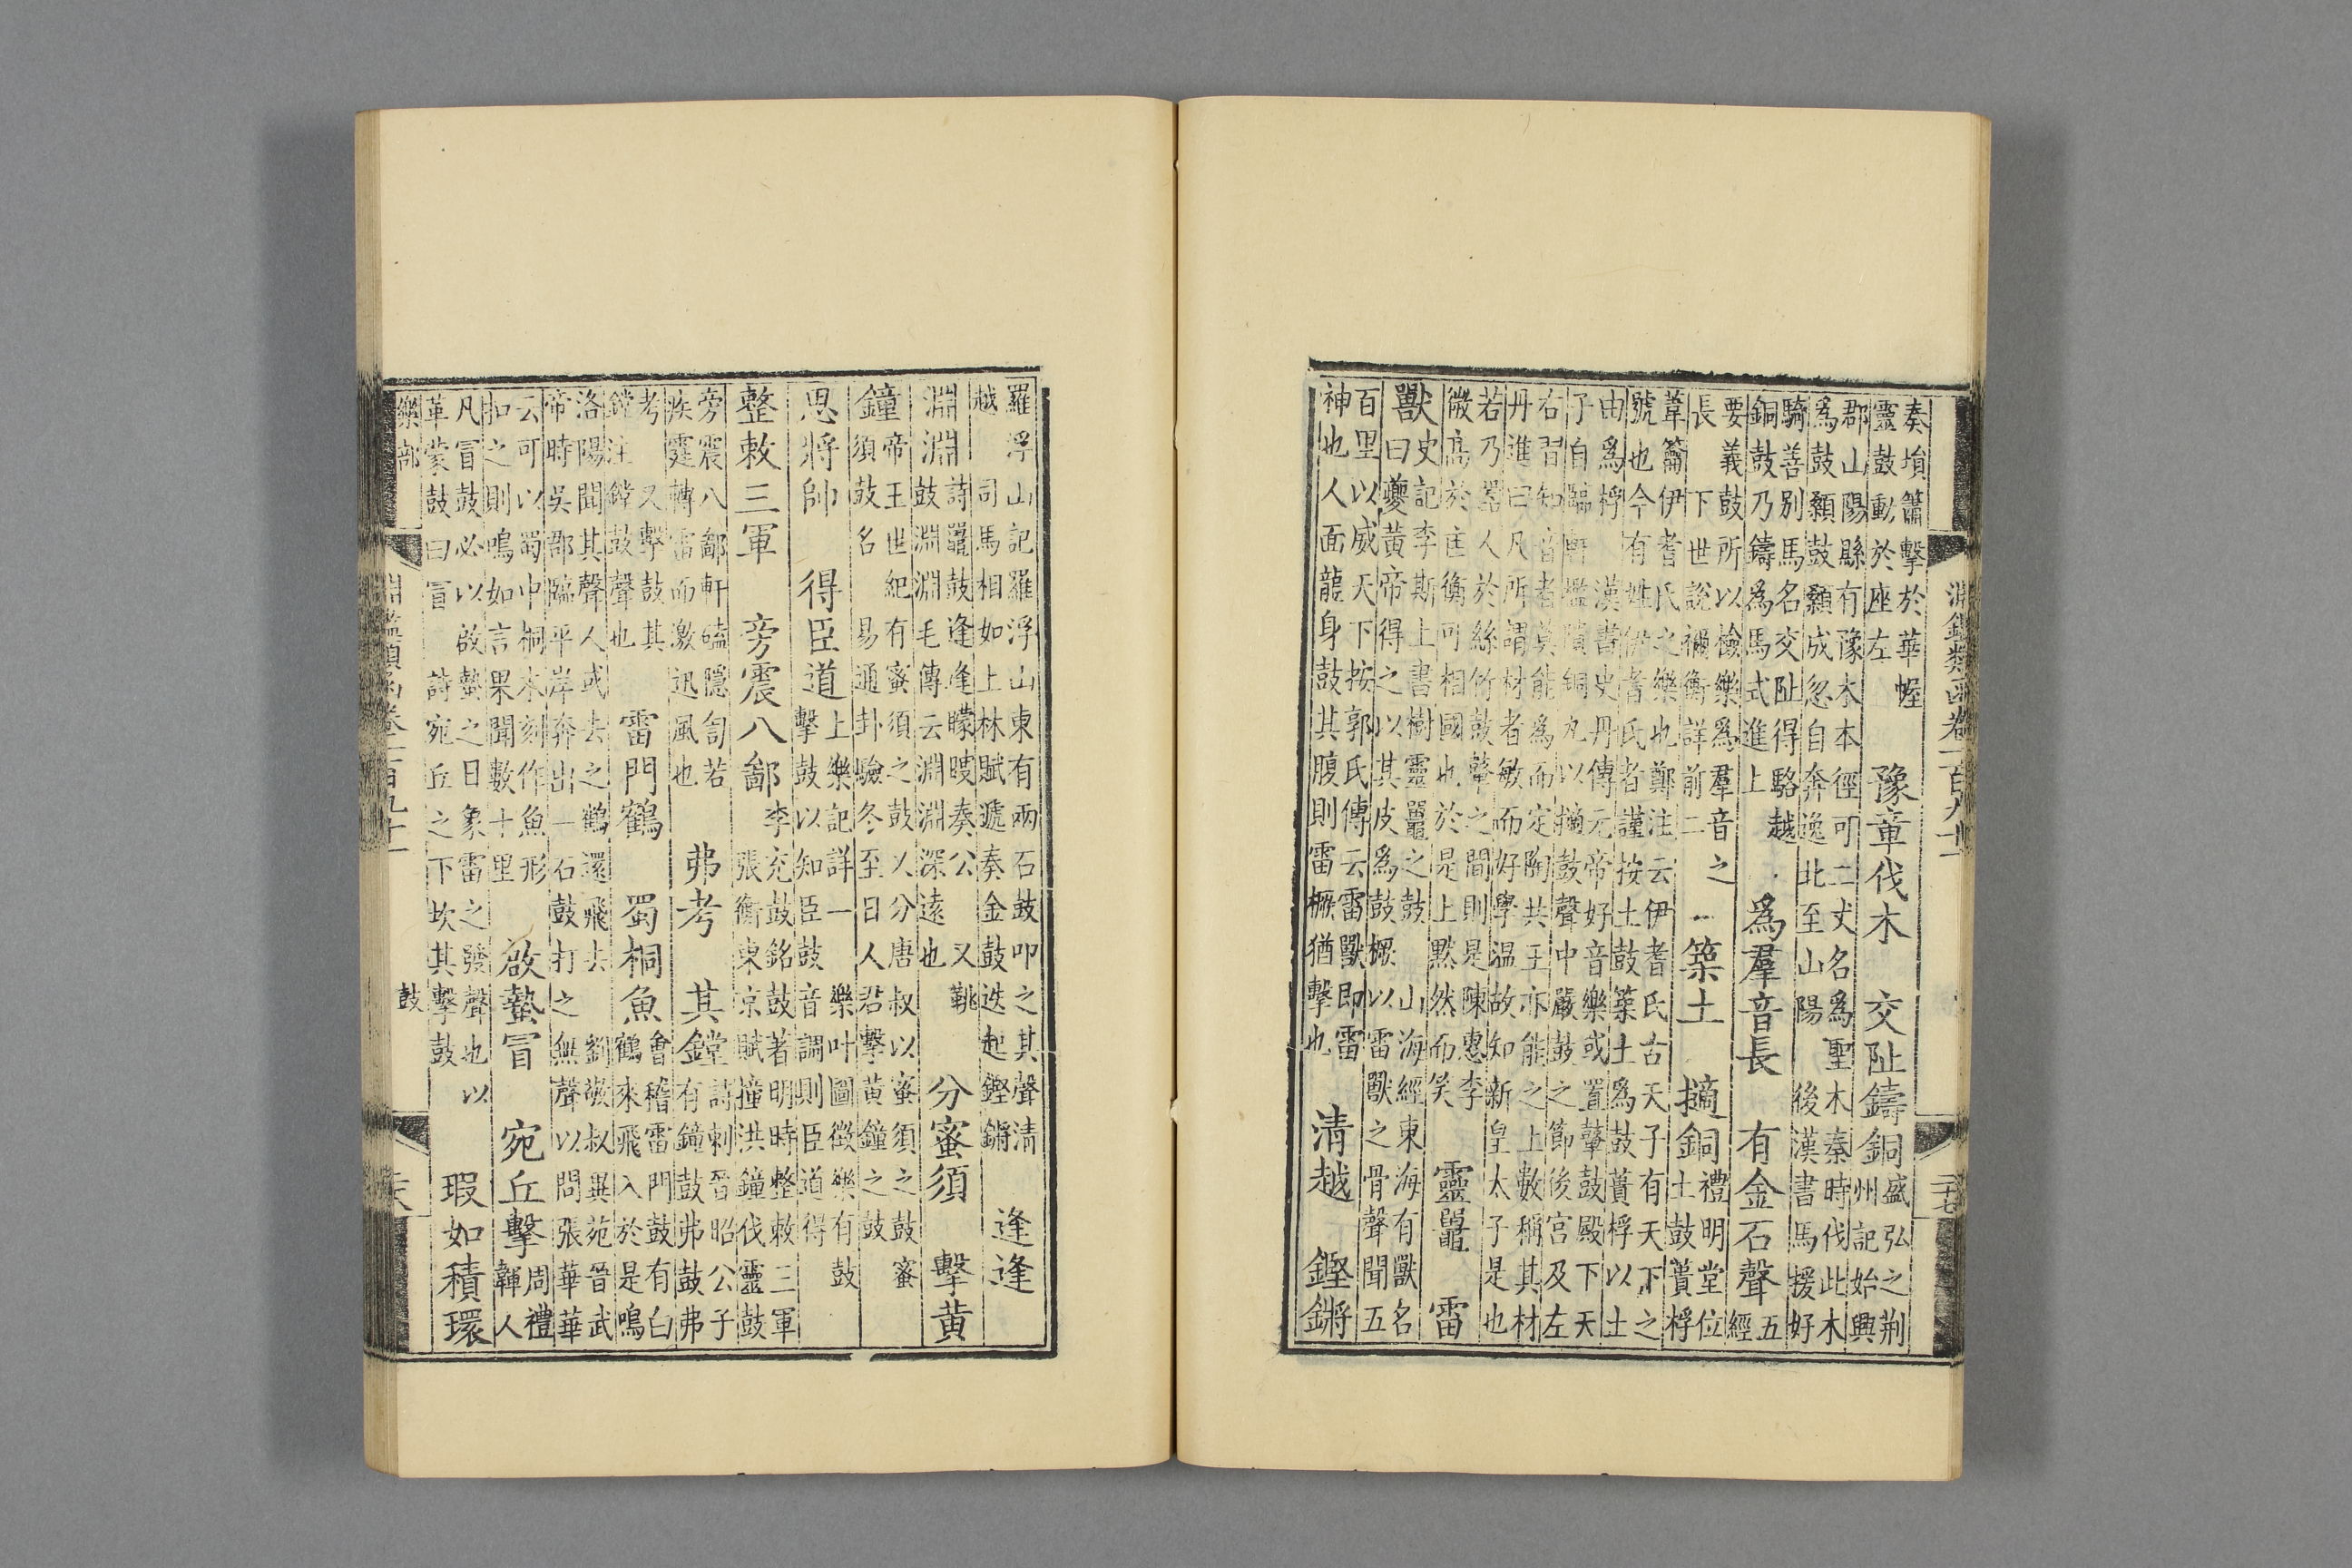 淵鑑類函卷一百九十一 二十七
奏塤簫擊於華幄
靈鼓動於座左
豫章伐木 交阯鑄銅
盛弘之荊
州記始興
郡山陽縣有豫木本徑可二丈名爲聖木秦時伐此木
爲鼓顙鼓顙成忽自奔逸北至山陽 後漢書馬援好
騎善別馬名交阯得駱越
銅鼓乃鑄爲馬式進上
爲羣音長 有金石聲
五
經
要義鼓所以檢樂爲羣音之
長 下世說禰衡詳前二
築土 摘銅
禮明堂位
土鼓蕢桴
葦籥伊耆氏之樂也鄭注云伊耆氏古天子有天下之
號也今有姓伊耆氏者謹按土鼓築土爲鼓蕢桴以土
由爲桴 漢書史丹傳元帝好音樂或置鼙鼓殿下天
子自臨軒檻隤銅丸以摘鼓聲中嚴鼓之節後宮及左
右習知音者莫能爲而定陶共王亦能之上數稱其材
丹進曰凡所謂材者敏而好學溫故知新皇太子是也
若乃器人於絲竹鼓鼙之間則是陳惠李
微高於匡衡可相國也於是上黙然而笑
靈鼉 雷
獸
史記李斯上書樹靈鼉之鼓 山海經東海有獸名
曰夔黄帝得之以其皮爲鼓橛以雷獸之骨聲聞五
百里以威天下按郭氏傳云雷獸即雷
神也人面龍身鼓其腹則雷橛猶擊也
清越 鏗鏘
羅浮山記羅浮山東有兩石鼓叩之其聲清
越 司馬相如上林賦遞奏金鼓迭起鏗鏘
逢逢
淵淵
詩鼉鼓逢逢矇瞍奏公 又鞉
鼓淵淵毛傳云淵淵深遠也
分蜜須 擊黄
鐘
帝王世紀有蜜須之鼓以分唐叔以蜜須之鼓蜜
須鼓名 易通卦驗冬至日人君擊黄鐘之鼓
思將帥 得臣道
上樂記詳一 樂叶圖徵樂有鼓
擊鼓以知臣鼓音調則臣道得
整敕三軍 旁震八鄙
李充鼓銘鼓著明時整敕三軍
張衡東京賦撞洪鐘伐靈鼓
旁震八鄙軒磕隱訇若
疾霆轉雷而激迅風也
弗考 其鏜
詩刺晉昭公子
有鐘鼓弗鼓弗
考 又擊鼓其
鏜注鏜鼓聲也
雷門鶴 蜀桐魚
會稽雷門鼓有白
鶴來飛入於是鳴
洛陽聞其聲人或去之鶴還飛去 劉敬叔異苑晉武
帝時吳郡臨平岸奔出一石鼓打之無聲以問張華華
云可以蜀中桐木刻作魚形
扣之則鳴如言果聞數十里
啟蟄冒 宛丘擊
周禮
韗人
凡冒鼓必以啟蟄之日象雷之發聲也以
革蒙鼓曰冒 詩宛丘之下坎其擊鼓
瑕如積環
樂部 鼓
淵鑑類函卷一百九十一